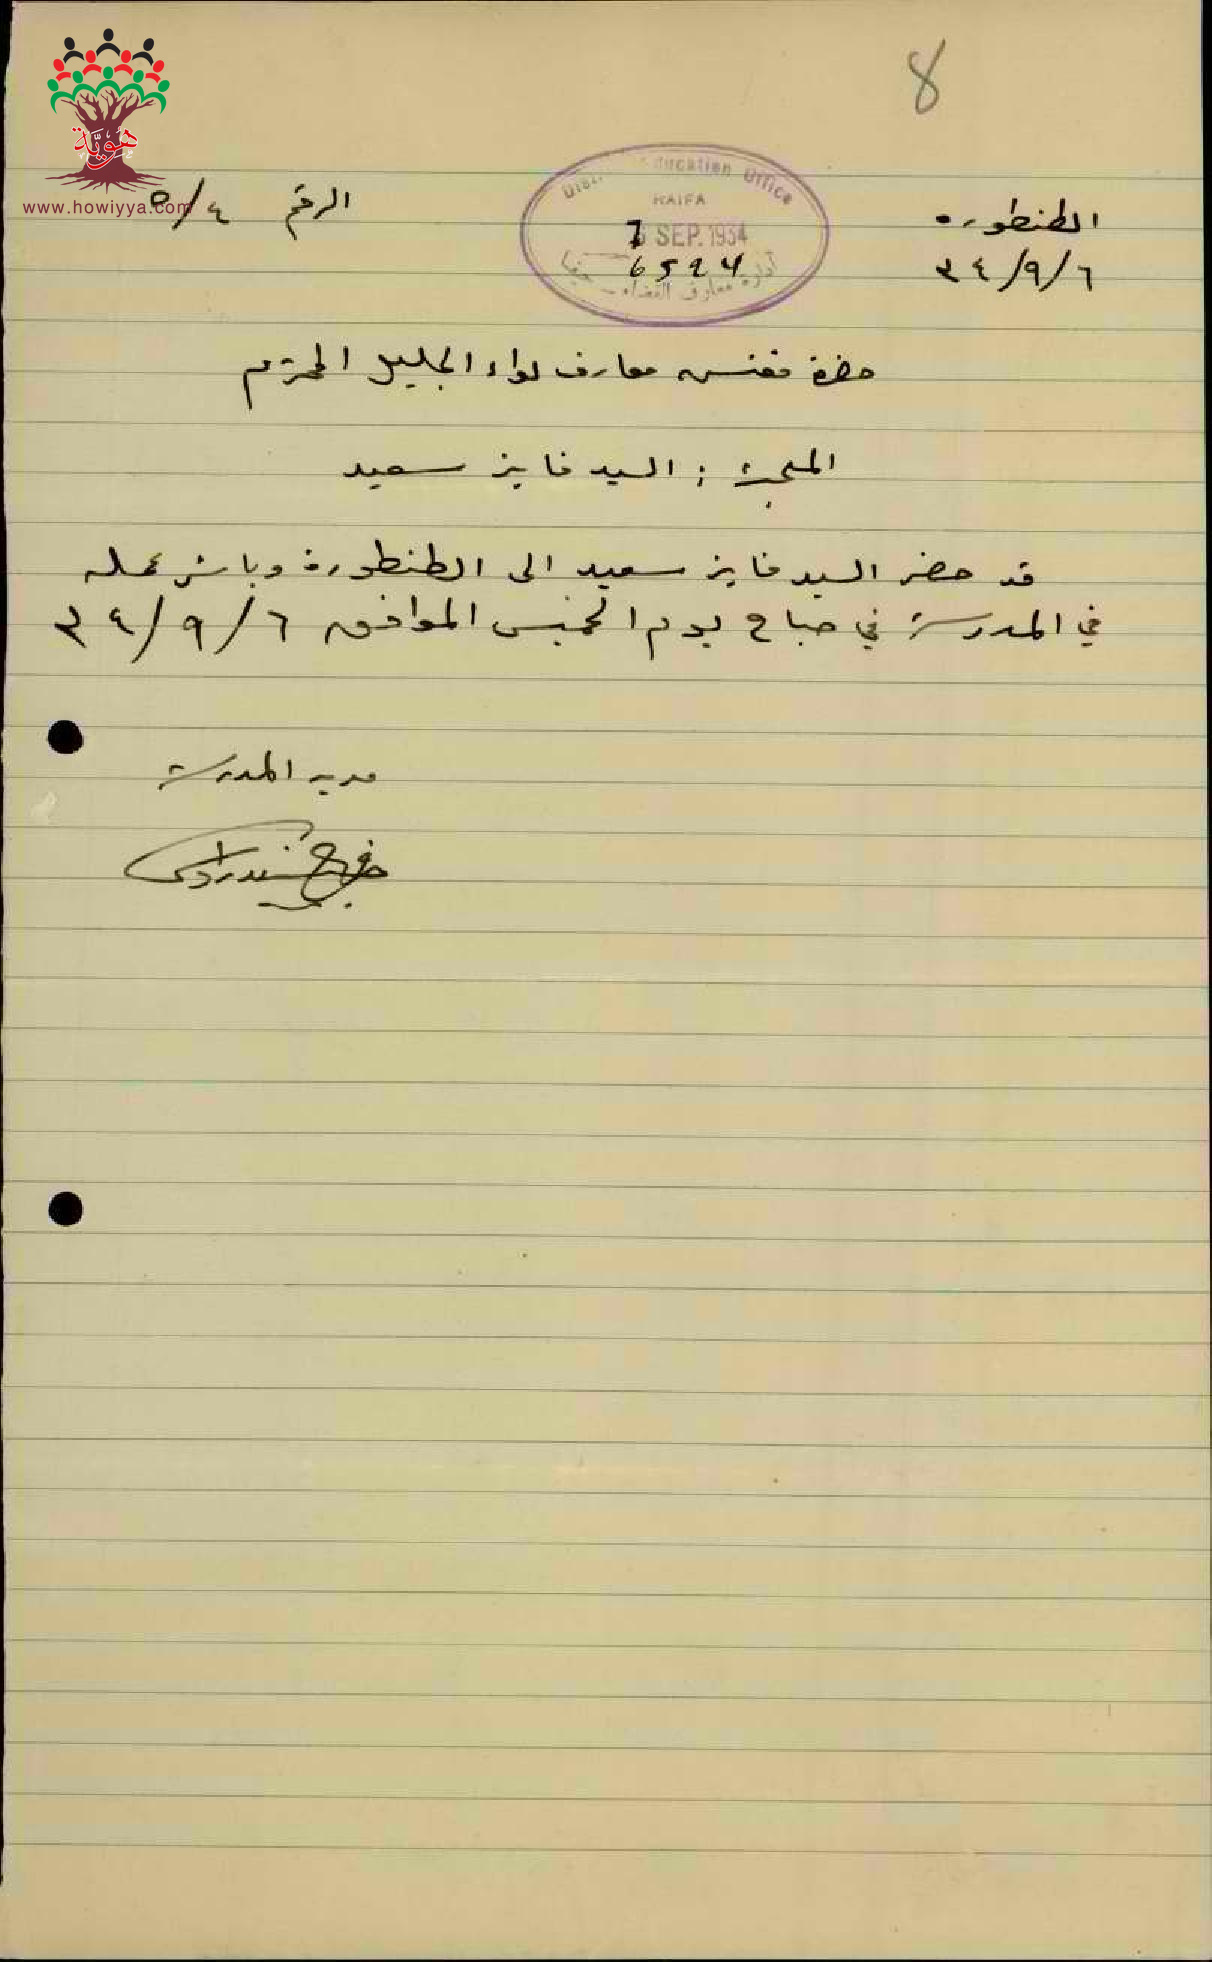 8
هوية
www.howiyya.com
الطنطوره
٣٤/٩/٦
الرقم ٥/٤
District Education Office
HAIFA
7 SEP. 1934
6524
ادارة معارف القضاء - حيفا
حضرة مفتش معارف لواء الجليل المحترم
المبحث : السيد فايز سعيد
قد حضر السيد فايز سعيد الى الطنطورة وباشر عمله
في المدرسة في صباح يوم الخميس الموافق ٣٤/٩/٦
مدير المدرسة